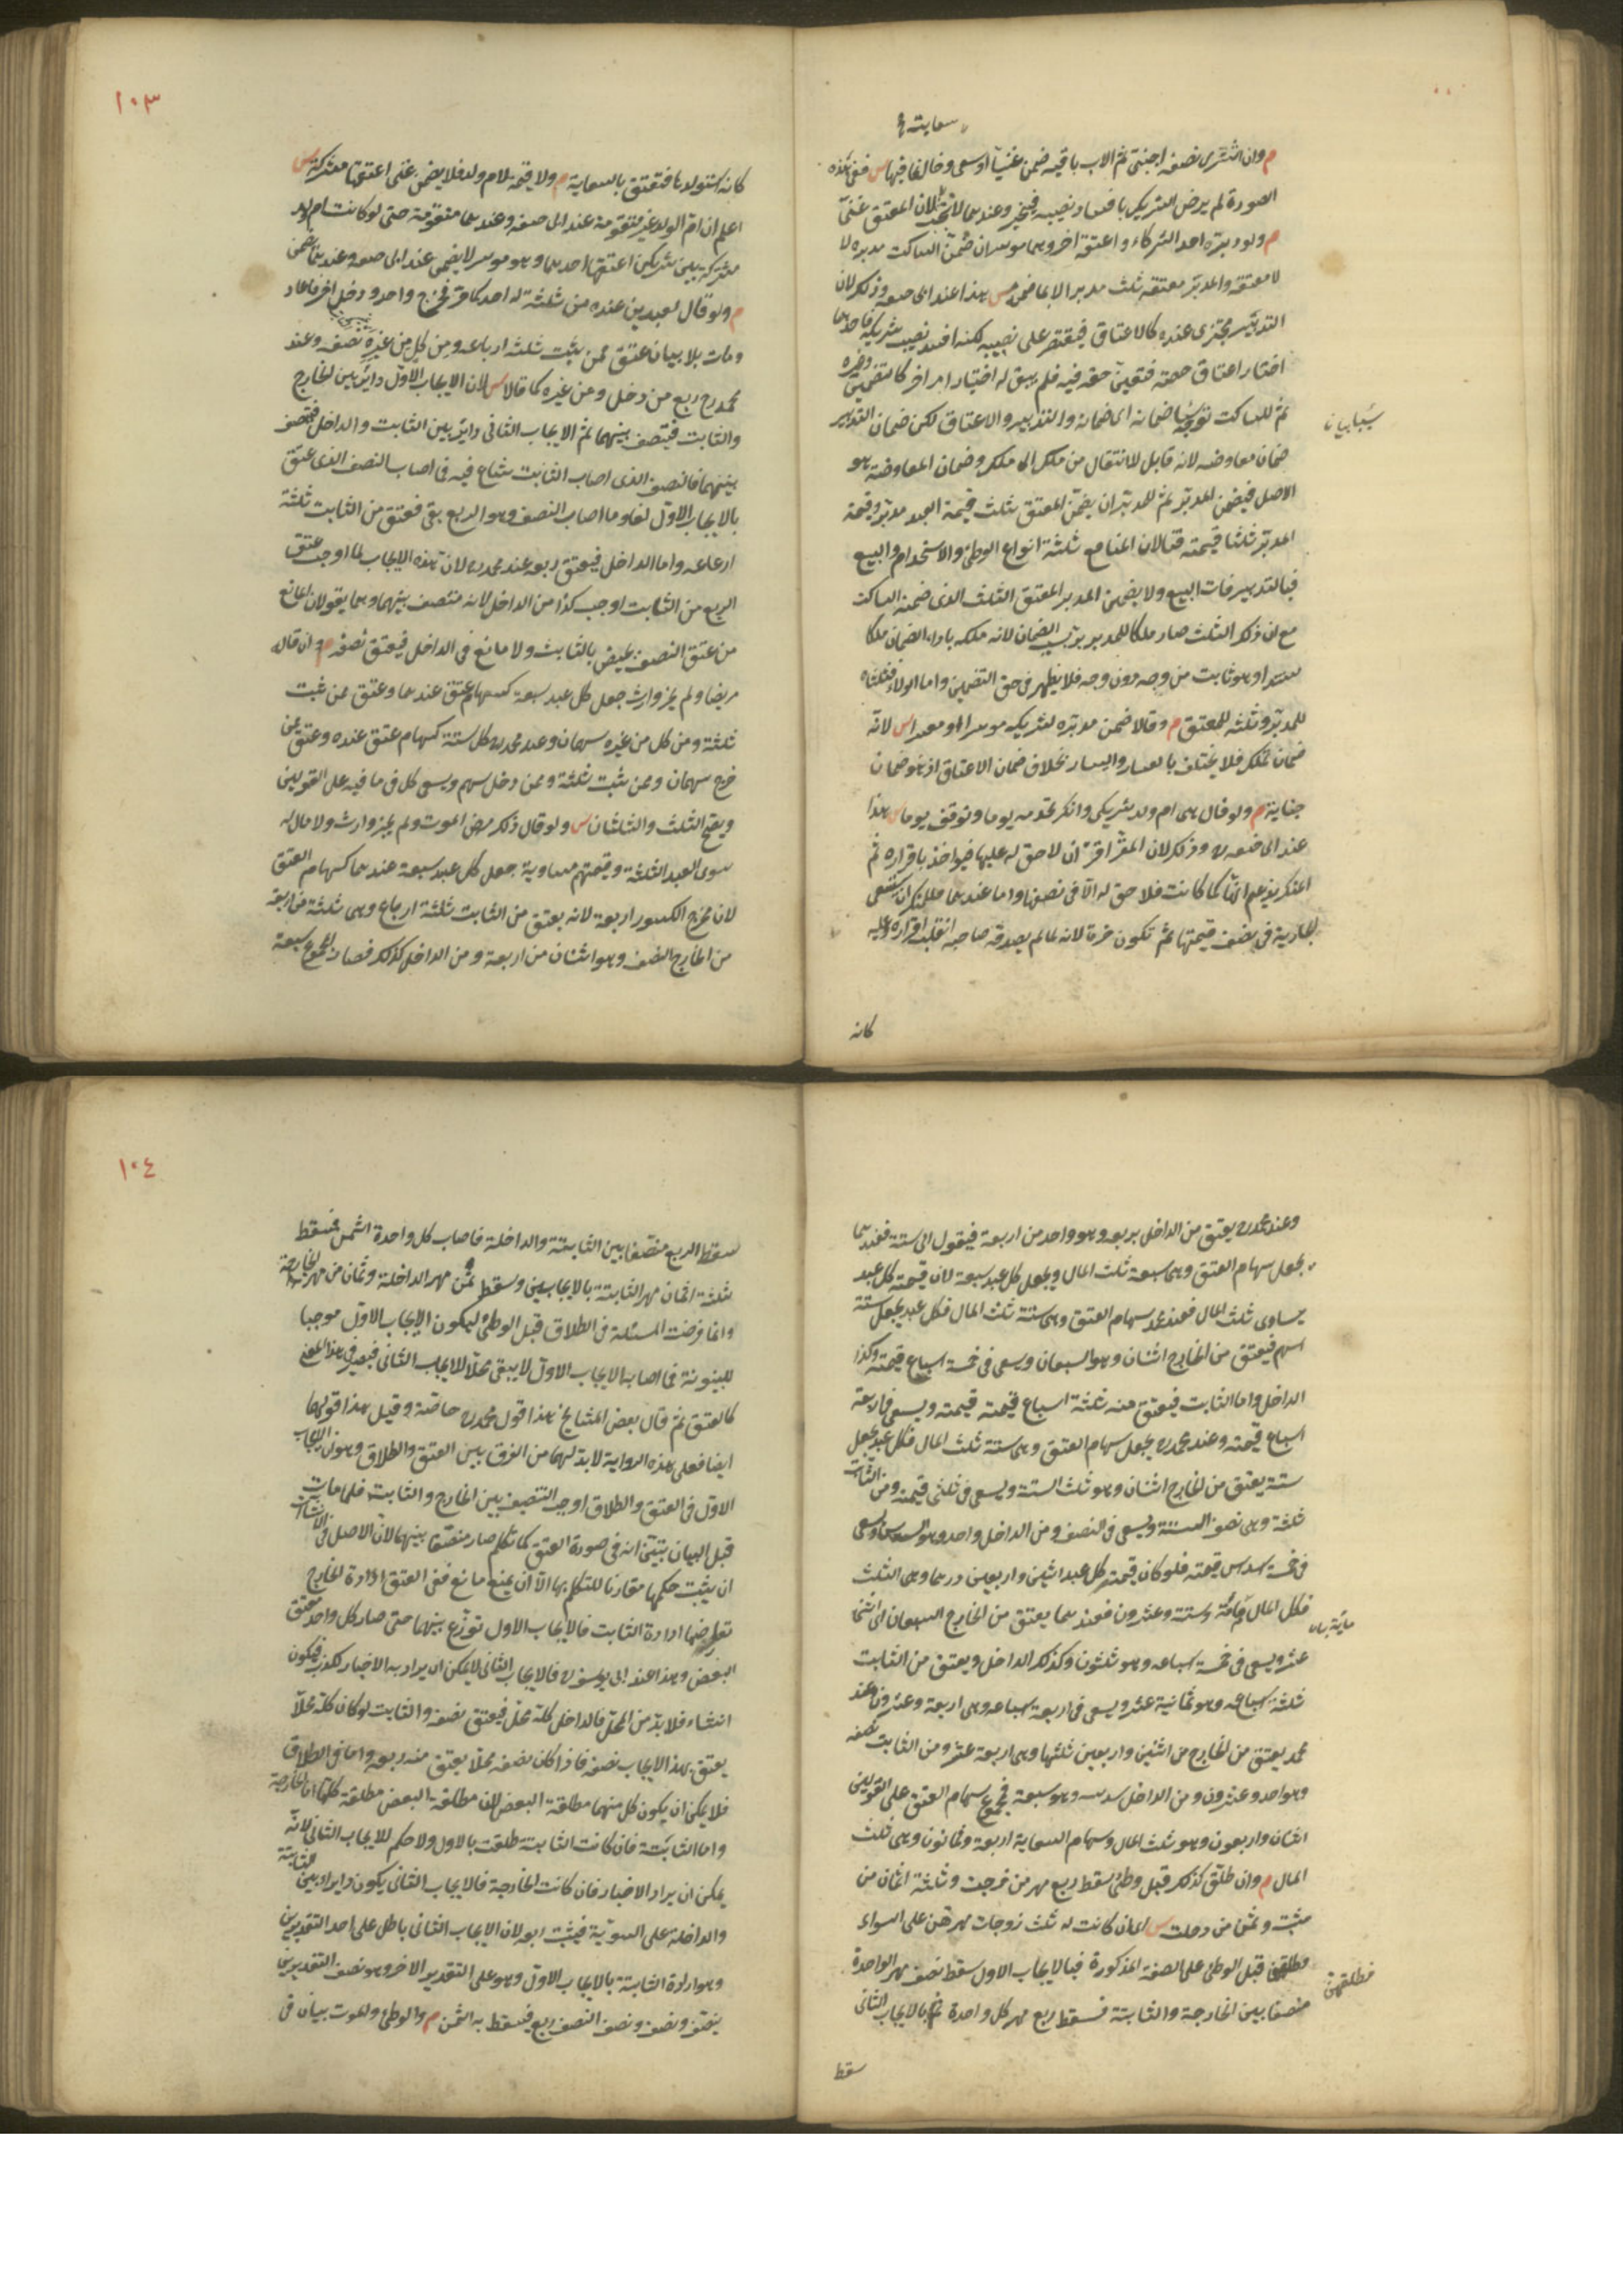 سعايته
م وان اشترى نصفه اجنبى ثم الاب باقيه ضمن غنيا او سعى وخالفا فيها س ففى هذه
الصورة لم يرض الشريك بافساد نصيبه فيتخير وعندهما لان المعتق غنيا
م ولو دبره احد الشركاء واعتقه اخر وهما موسران ضمن الساكت مدبره لا
لا معتقه والمدبر معتقه ثلث مدبرا لا ما ضمن س هذا عند ابى حنيفة وذلك لان
التدبير متجزى عنده كالاعتاق فيقتصر على نصيبه لكنه افسد نصيب شريكه فاحدهما
اختار اعتاق حصته فتعين حقه فيه فلم يبق له اختيار امر اخر كالتضمين وغيره
ثم للساكت توجه سببا ضمان اى ضمان والتدبير والاعتاق لكن ضمان التدبير
سببا بيان
ضمان معاوضه لانه قابل للانتقال من ملك الى ملك وضمان المعاوضة هو
الاصل فيضمن المدبر ثم للمدبر ان يضمن المعتق ثلث قيمة العبد مدبرا وقيمة
المدبر ثلثا قيمته قنا لان المنافع ثلثة انواع الوطئ والاستخدام والبيع
فبالتدبير فات البيع ولا يضمن المدبر المعتق الثلث الذى ضمنه الساكت
مع ان ذلك الثلث صار ملكا للمدبر بسبب الضمان لانه ملكه باداء الضمان ملكا
مستندا وهو ثابت من وجه دون وجه فلا يظهر فى حق التضمين واما الولاء فثلثاه
للمدبر وثلثه للمعتق م وقالا ضمن مدبره لشريكه موسرا او معسرا س لانه
ضمان تملك فلا يختلف باليسار والعسار بخلاف ضمان الاعتاق اذ هو ضمان
جناية م ولو قال هى ام ولد شريكى وانكر تخدمه يوما وتوقف يوما س هذا
عند ابى حنيفة وذلك لان المقر اقر ان لا حق له عليها فيؤاخذ باقراره ثم
المنكر يزعم انها كما كانت فلا حق له الا فى نصفها واما عندهما فللمنكر ان يستسعى
الجارية فى نصف قيمتها ثم تكون حرة لانه لما لم يصدقه صاحبه انقلب اقراره عليه
كانه
١٠٣
كانه استولدها فتعتق بالسعاية م ولا قيمة لام ولد فلا يضمن غنى اعتقها مشتركة س
اعلم ان ام الولد غير متقومة عند ابى حنيفة وعندهما متقومة حتى لو كانت ام ولد
مشتركة بين شريكين اعتقها احدهما وهو موسر لا يضمن عند ابى حنيفة وعندهما يضمن
م ولو قال لعبدين عنده من ثلثة له احدكما حر فخرج واحد ودخل اخر فاعاد
ومات بلا بيان عتق ممن ثبت ثلثة ارباعه ومن كل من غيره نصفه وعند
محمد رح ربع من دخل ومن غيره كما قالا س لان الايجاب الاول دائر بين الخارج
والثابت فيتنصف بينهما ثم الايجاب الثانى دائر بين الثابت والداخل فيتنصف
بينهما فالنصف الذى اصاب الثابت شاع فيه فى اصاب النصف الذى عتق
بالايجاب الاول لغا وما اصاب النصف وهو الربع بقى فعتق من الثابت ثلثة
ارباعه واما الداخل فيعتق ربعه عند محمد لان هذه الايجاب لما اوجب عتق
الربع من الثابت اوجب كذا من الداخل لانه متنصف بينهما وهما يقولان المانع
من عتق النصف يختص بالثابت ولا مانع فى الداخل فيعتق نصفه م وان قاله
مريضا ولم يجز وارث جعل كل عبد سبعة كسهام عتق عندهما وعتق ممن ثبت
ثلثة ومن كل من غيره سهمان وعند محمد كل ستة كسهام عتق عنده وعتق ممن
خرج سهمان وممن ثبت ثلثة وممن دخل سهم ويسعى كل فى ما فيه على القولين
ويصح الثلث والثلثان س ولو قال ذلك مرض الموت ولم يجز وارث ولا مال له
سوى العبد الثلثة وقيمتهم متساوية جعل كل عبد سبعة عندهما كسهام العتق
لان مخرج الكسور اربعة لانه يعتق من الثابت ثلثة ارباع وهى ثلثة من اربعة
من الخارج النصف وهو اثنان من اربعة ومن الداخل كذلك فصار المجموع سبعة
وعند محمد يعتق من الداخل ربعه وهو واحد من اربعة فيعول الى ستة فعندهما
يجعل سهام العتق وهى سبعة ثلث المال ويجعل كل عبد سبعة لان قيمة كل عبد
يساوى ثلث المال فعند محمد سهام العتق وهى ستة ثلث المال فكل عبد يجعل ستة
اسهم فيعتق من الخارج اثنان وهو السبعان ويسعى فى خمسة اسباع قيمته وكذا
الداخل واما الثابت فيعتق منه ثلثة اسباع قيمته قيمته ويسعى فى اربعة
اسباع قيمته وعند محمد يجعل سهام العتق وهى ستة ثلث المال فكل عبد يجعل
ستة يعتق من الخارج اثنان وهو ثلث الستة ويسعى فى ثلثى قيمته ومن الثابت
ثلثة وهى نصف الستة ويسعى فى النصف ومن الداخل واحد وهو السدس ويسعى
فى خمسة اسداس قيمته فلو كان قيمة كل عبد اثنين واربعين درهما وهى الثلث
فكل المال مائة وستة وعشرون فعندهما يعتق من الخارج السبعان اى اثنا
مائة بيان
عشر ويسعى فى خمسة اسباعه وهو ثلثون وكذلك الداخل ويعتق من الثابت
ثلثة اسباعه وهو ثمانية عشر ويسعى فى اربعة اسباعه وهى اربعة وعشرون وعند
محمد يعتق من الخارج من اثنين واربعين ثلثها وهى اربعة عشر ومن الثابت نصفه
وهو احد وعشرون ومن الداخل سدسه وهو سبعة فمجموع سهام العتق على القولين
اثنان واربعون وهو ثلث المال وسهام السعاية اربعة وثمانون وهى ثلثا
المال م وان طلق كذلك قبل وطئ سقط ربع مهر من خرجت وثلثة اثمان من
ثبتت وثمن من دخلت س اى ان كانت له ثلث زوجات مهرهن على السواء
وطلقهن قبل الوطئ على الصفة المذكورة فبالايجاب الاول سقط نصف مهر الواحدة
فطلقهن
منصفا بين الخارجة والثابتة فسقط ربع مهر كل واحدة ثم بالايجاب الثانى
سقط
١٠٤
سقط الربع منصفا بين الثابتة والداخلة فاصاب كل واحدة الثمن فسقط
ثلثة اثمان مهر الثابتة بالايجابين وسقط ثمن مهر الداخلة وثمان من مهر الخارجة
وانما فرضت المسئلة فى الطلاق قبل الوطئ ليكون الايجاب الاول موجبا
للبينونة فى اصابه الايجاب الاول لا يبقى محلا للايجاب الثانى فيصير فى هذا المعنى
كالعتق ثم قال بعض المشايخ هذا قول محمد خاصة وقيل هذا قولهما
ايضا فعلى هذه الرواية لابد لهما من الفرق بين العتق والطلاق وهو ان الايجاب
الاول فى العتق والطلاق اوجب التنصيف بين الخارج والثابت فلما مات
قبل البيان تبين انه فى صورة العتق كما تكلم صار منصفا بينهما لان الاصل فى الانشاءات
ان يثبت حكمها مقارنا للتكلم بها الا ان يمنع مانع ففى العتق ارادة الخارج
تعارضها ارادة الثابت فالايجاب الاول توزع بينهما حتى صار كل واحد معتق
البعض وهذا عند ابى يوسف فالايجاب الثانى لا يمكن ان يراد به الاخبار للكذب فيكون
انشاء فلا بد من المحل فالداخل كله محل فيعتق نصفه والثابت لو كان كله محلا
يعتق بهذا الايجاب نصفه فاذا كان نصفه محلا يعتق منه ربعه واما فى الطلاق
فلا يمكن ان يكون كل منهما مطلقة البعض لان مطلقة البعض مطلقة كلها اما الخارجة
واما الثابتة فان كانت الثابتة طلقت بالاول ولا حكم للايجاب الثانى لانه
يمكن ان يراد الاخبار فان كانت الخارجة فالايجاب الثانى يكون دائرا بين الثابتة
والداخلة على السوية فيثبت ربعه لان الايجاب الثانى باطل على احد التقديرين
وهو ارادة الثابتة بالايجاب الاول وهو على التقدير الاخر وهو نصف التقديرين
ينصف ونصف النصف ربع فيسقط به الثمن م والوطئ والموت بيان فى